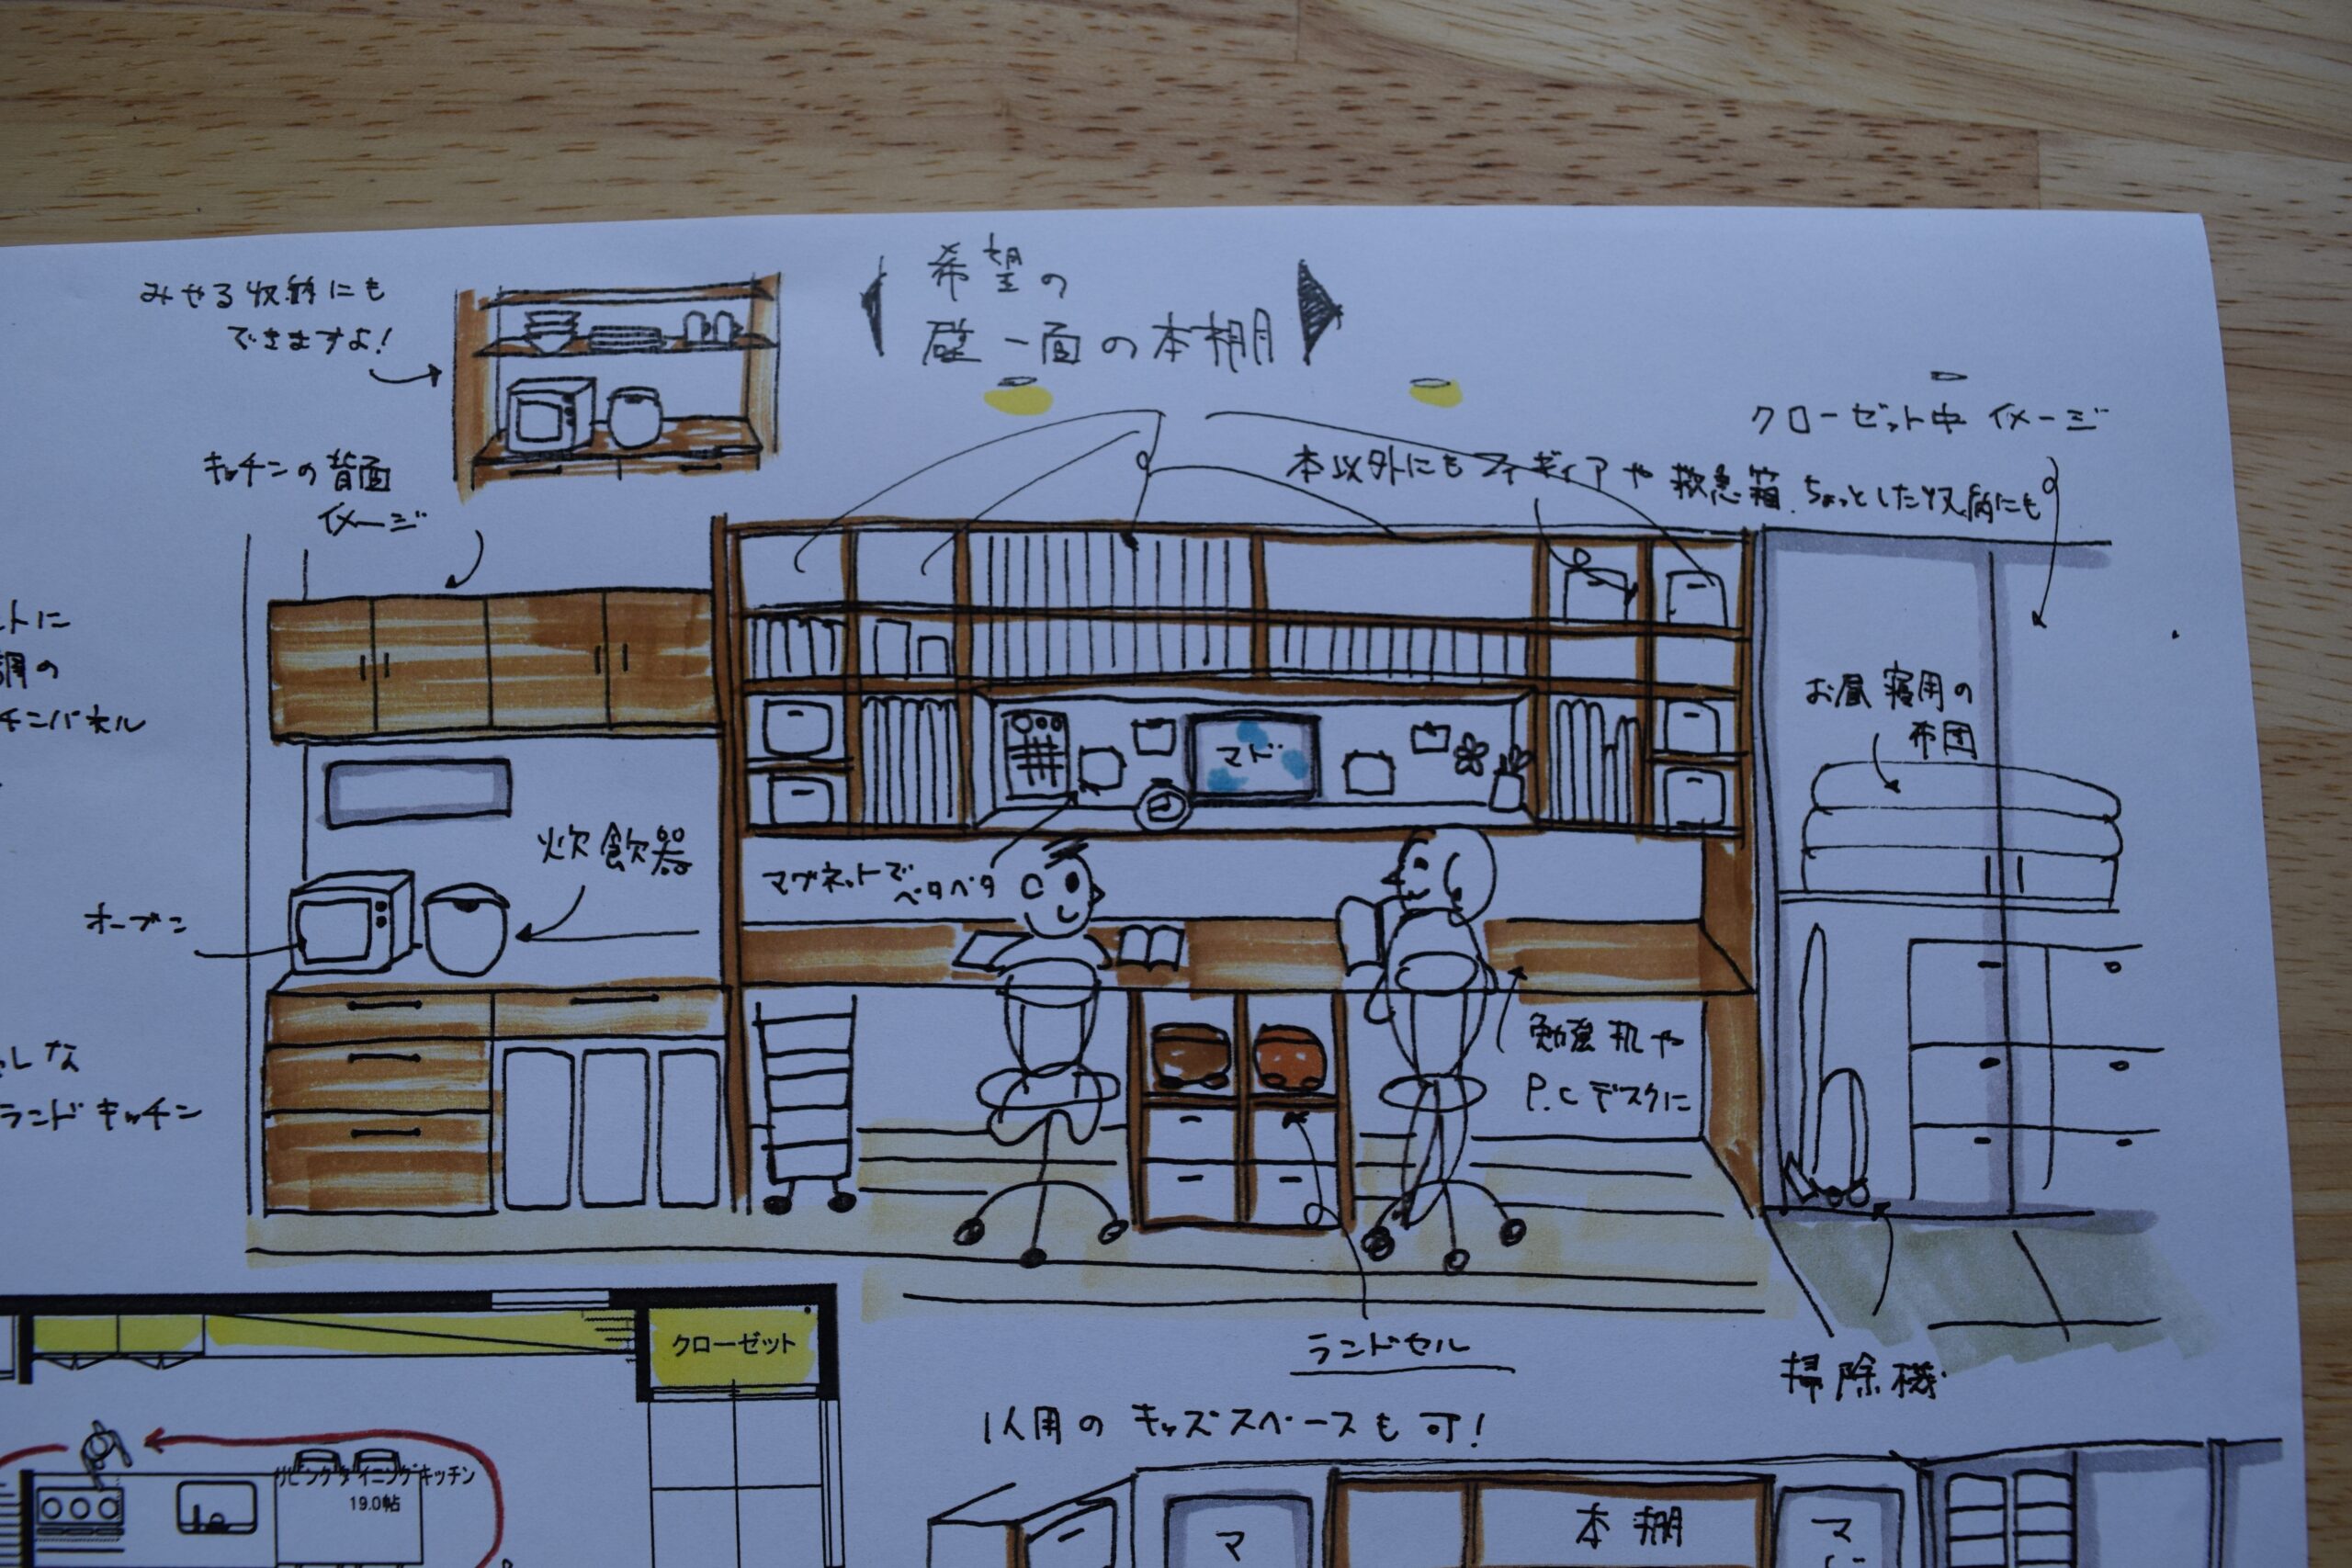 みせる収納にも
できますよ！
希望の
壁一面の本棚
クローゼット中 イメージ
キッチンの背面
イメージ
本以外にも フィギィアや 救急箱、ちょっとした収納にも
トに
チンパネル
お昼寝用の
布団
マド
炊飯器
マグネットで
ペタペタ
オーブン
勉強机や
P.C デスクに
しな
ランドキッチン
ランドセル
掃除機
クローゼット
1人用の キッズスペースも 可！
リビングダイニングキッチン
19.0帖
本棚
マ
マ